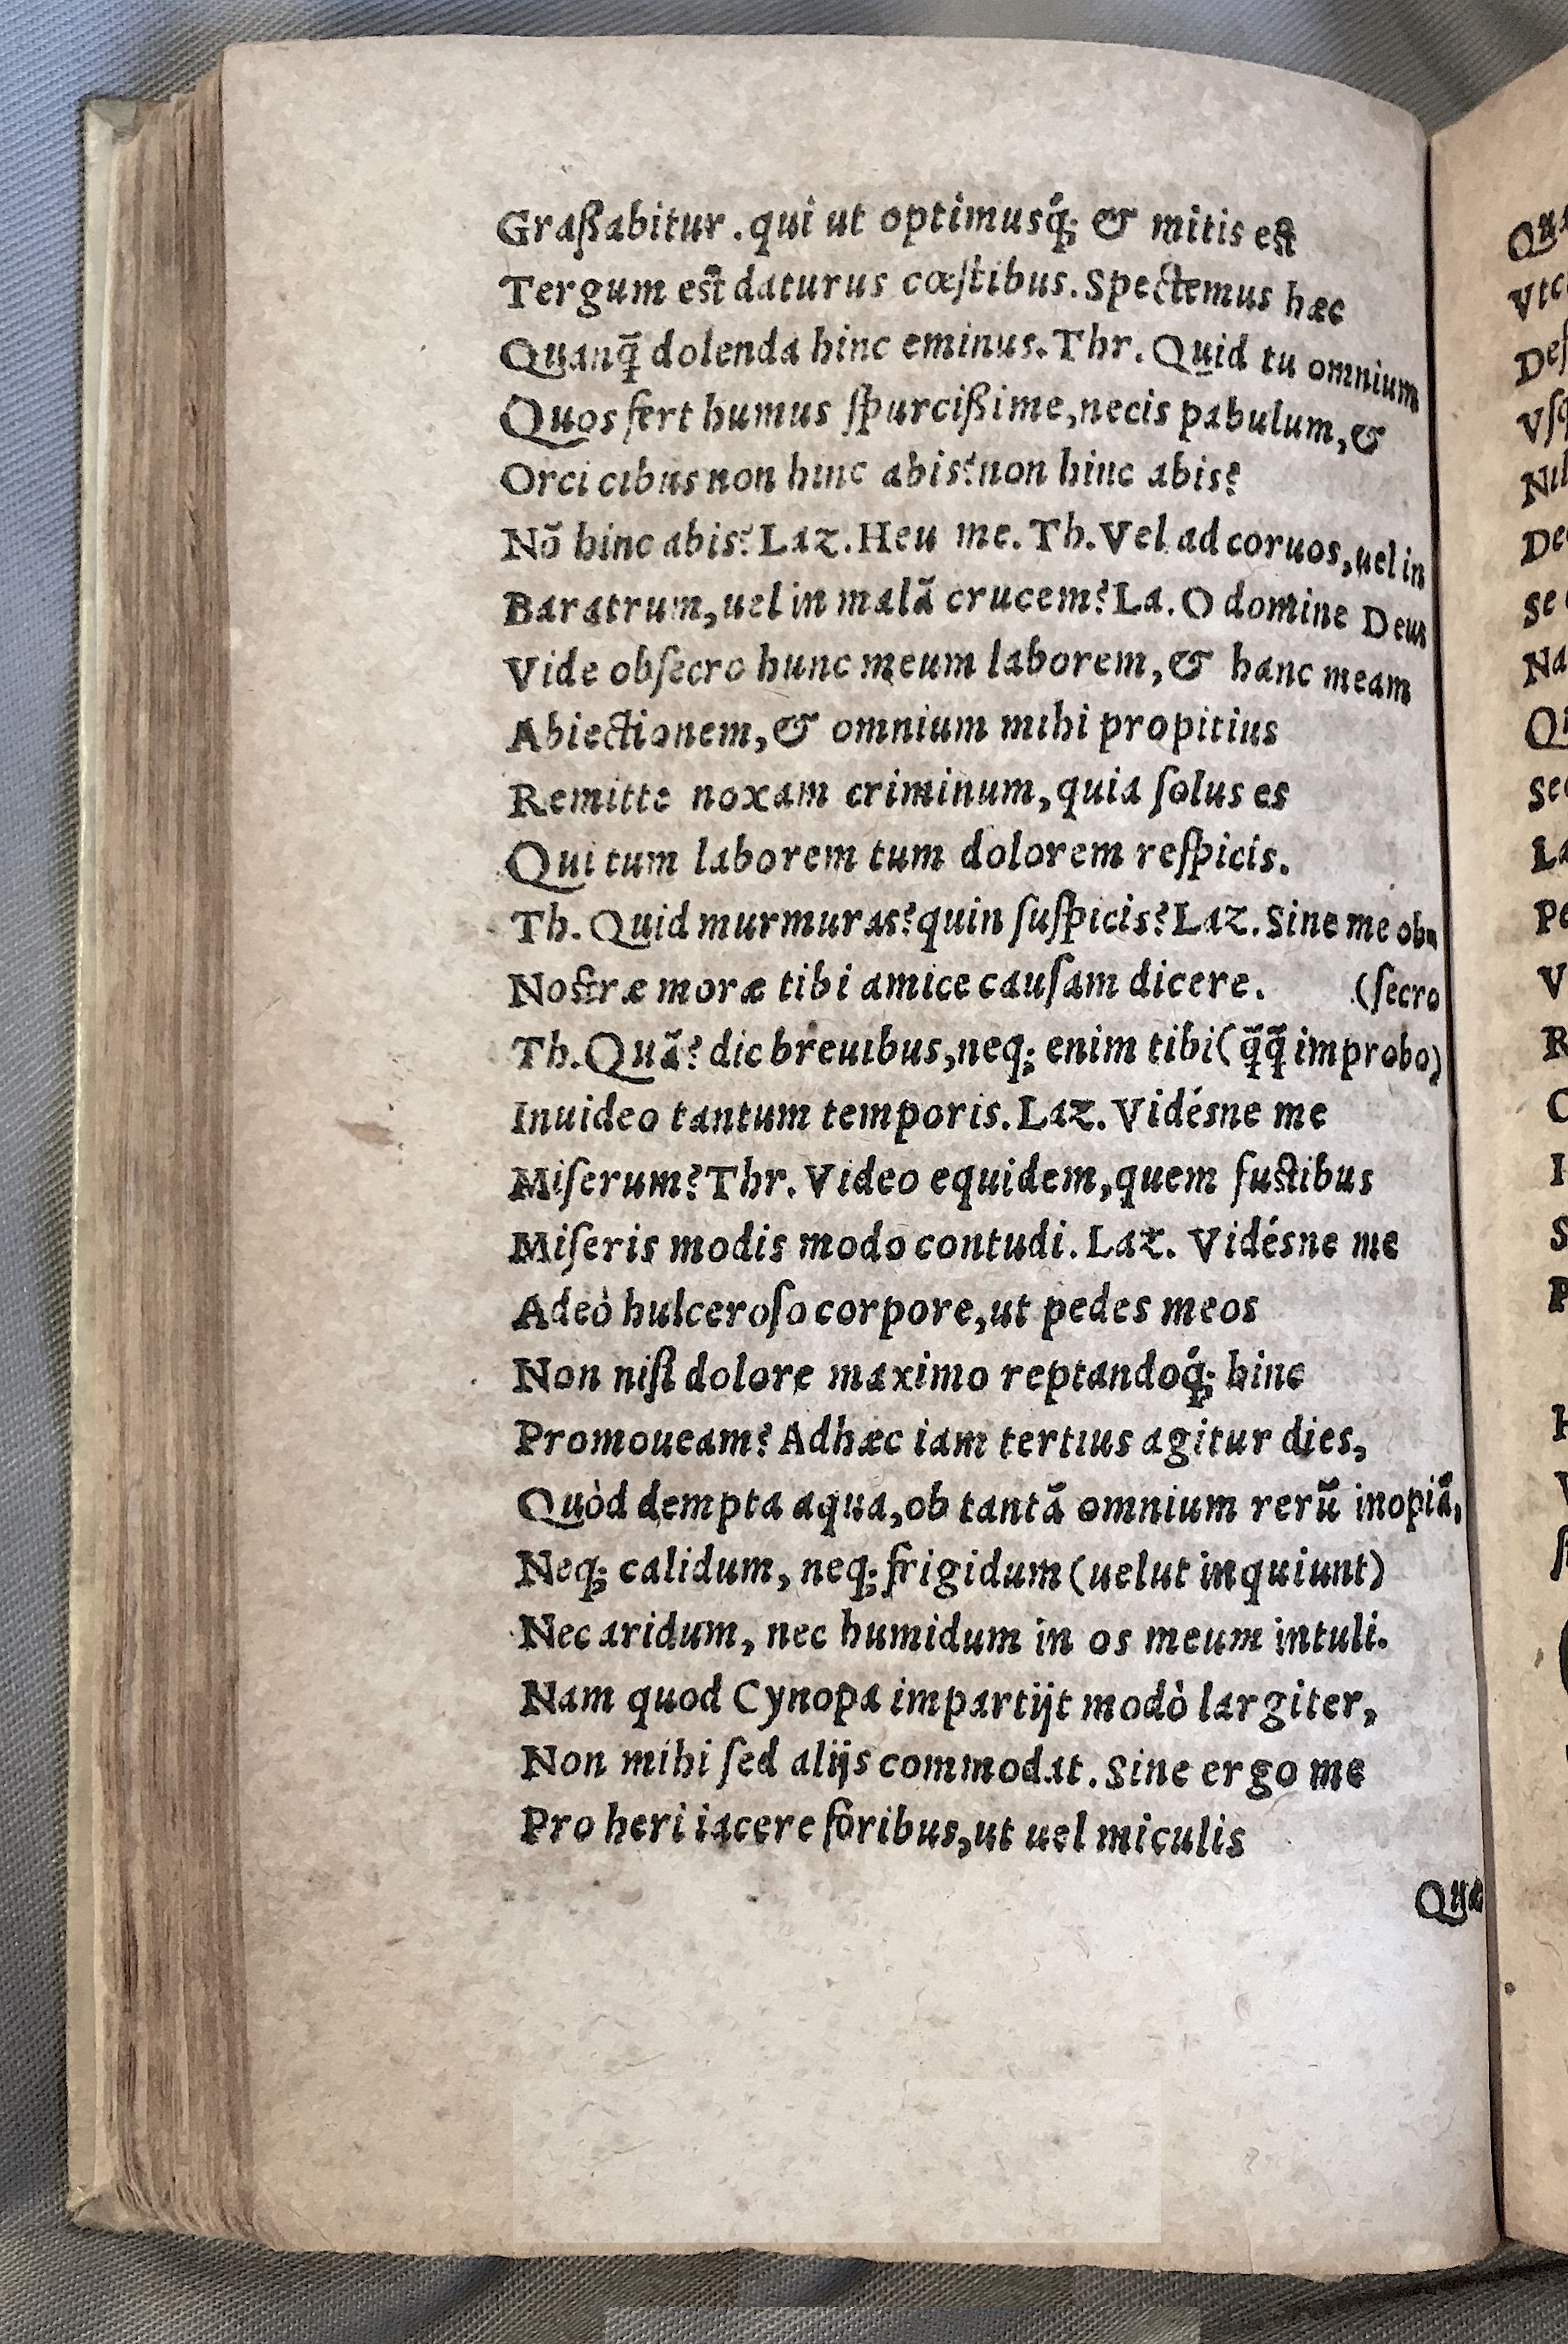 Graßabitur. qui ut optimusq́; & mitis est
Tergum est daturus cæſtibus. Spectemus hæc
Quanq̃ dolenda hinc eminus. Thr. Quid tu omnium
Quos fert humus ſpurcißime, necis pabulum, &
Orci cibus non hinc abis? non hinc abis?
Nō hinc abis? Laz. Heu me. Th. Vel ad coruos, uel in
Baratrum, uel in malã crucem? La. O domine Deus
Vide obſecro hunc meum laborem, & hanc meam
Abiectionem, & omnium mihi propitius
Remitte noxam criminum, quia ſolus es
Qui tum laborem tum dolorem reſpicis.
Th. Quid murmuras? quin ſuſpicis? Laz. Sine me ob-
Nostræ moræ tibi amice cauſam dicere. (ſecro
Th. Quã? dic breuibus, neq; enim tibi (q̃q̃ improbo)
Inuideo tantum temporis. Laz. Vidésne me
Miſerum? Thr. Video equidem, quem fustibus
Miſeris modis modo contudi. Laz. Vidésne me
Adeò hulceroſo corpore, ut pedes meos
Non niſi dolore maximo reptandoq́; hinc
Promoueam? Adhæc iam tertius agitur dies,
Quòd dempta aqua, ob tantã omnium rerũ inopiã,
Neq; calidum, neq; frigidum (uelut inquiunt)
Nec aridum, nec humidum in os meum intuli.
Nam quod Cynopa impartijt modò largiter,
Non mihi ſed alijs commodat. Sine ergo me
Pro heri iacere foribus, ut uel miculis
Quæ